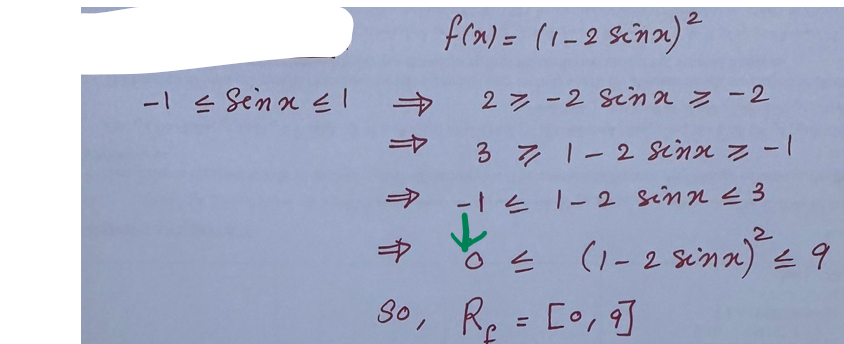 f(x) = (1-2 sinx)²
-1 ≤ Sinx ≤ 1 ⇒ 2 ≥ -2 sinx ≥ -2
⇒ 3 ≥ 1-2 sinx ≥ -1
⇒ -1 ≤ 1-2 sinx ≤ 3
⇒ 0 ≤ (1-2 sinx)² ≤ 9
So, R_f = [0, 9]